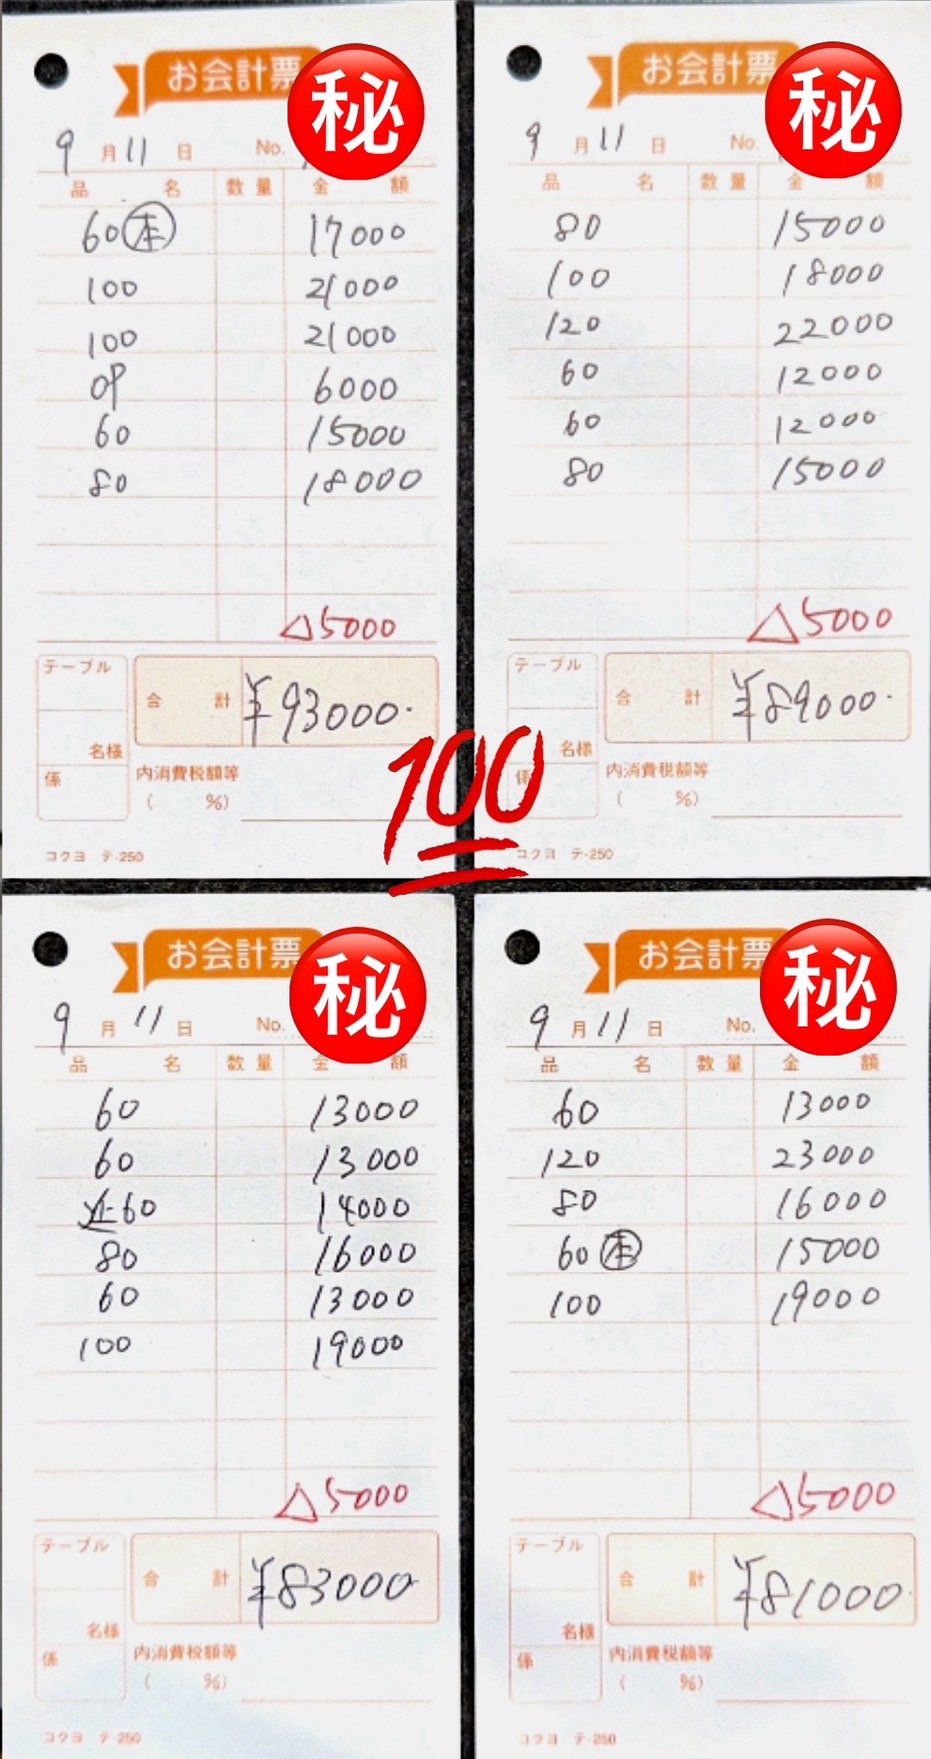 お会計票
秘
9月11日 No.
品名 数量 金額
60㊍ 17000
100 21000
100 21000
OP 6000
60 15000
80 18000
△5000
テーブル
合計 ¥93000.
名様
係
内消費税額等
( %)
コクヨ テ-250
お会計票
秘
9月11日 No.
品名 数量 金額
80 15000
100 18000
120 22000
60 12000
60 12000
80 15000
△5000
テーブル
合計 ¥89000.
名様
係
内消費税額等
( %)
コクヨ テ-250
100
お会計票
秘
9月11日 No.
品名 数量 金額
60 13000
60 13000
延60 14000
80 16000
60 13000
100 19000
△5000
テーブル
合計 ¥83000
名様
係
内消費税額等
( %)
コクヨ テ-250
お会計票
秘
9月11日 No.
品名 数量 金額
60 13000
120 23000
80 16000
60 本 15000
100 19000
△5000
テーブル
合計 ¥81000.
名様
係
内消費税額等
( %)
コクヨ テ-250